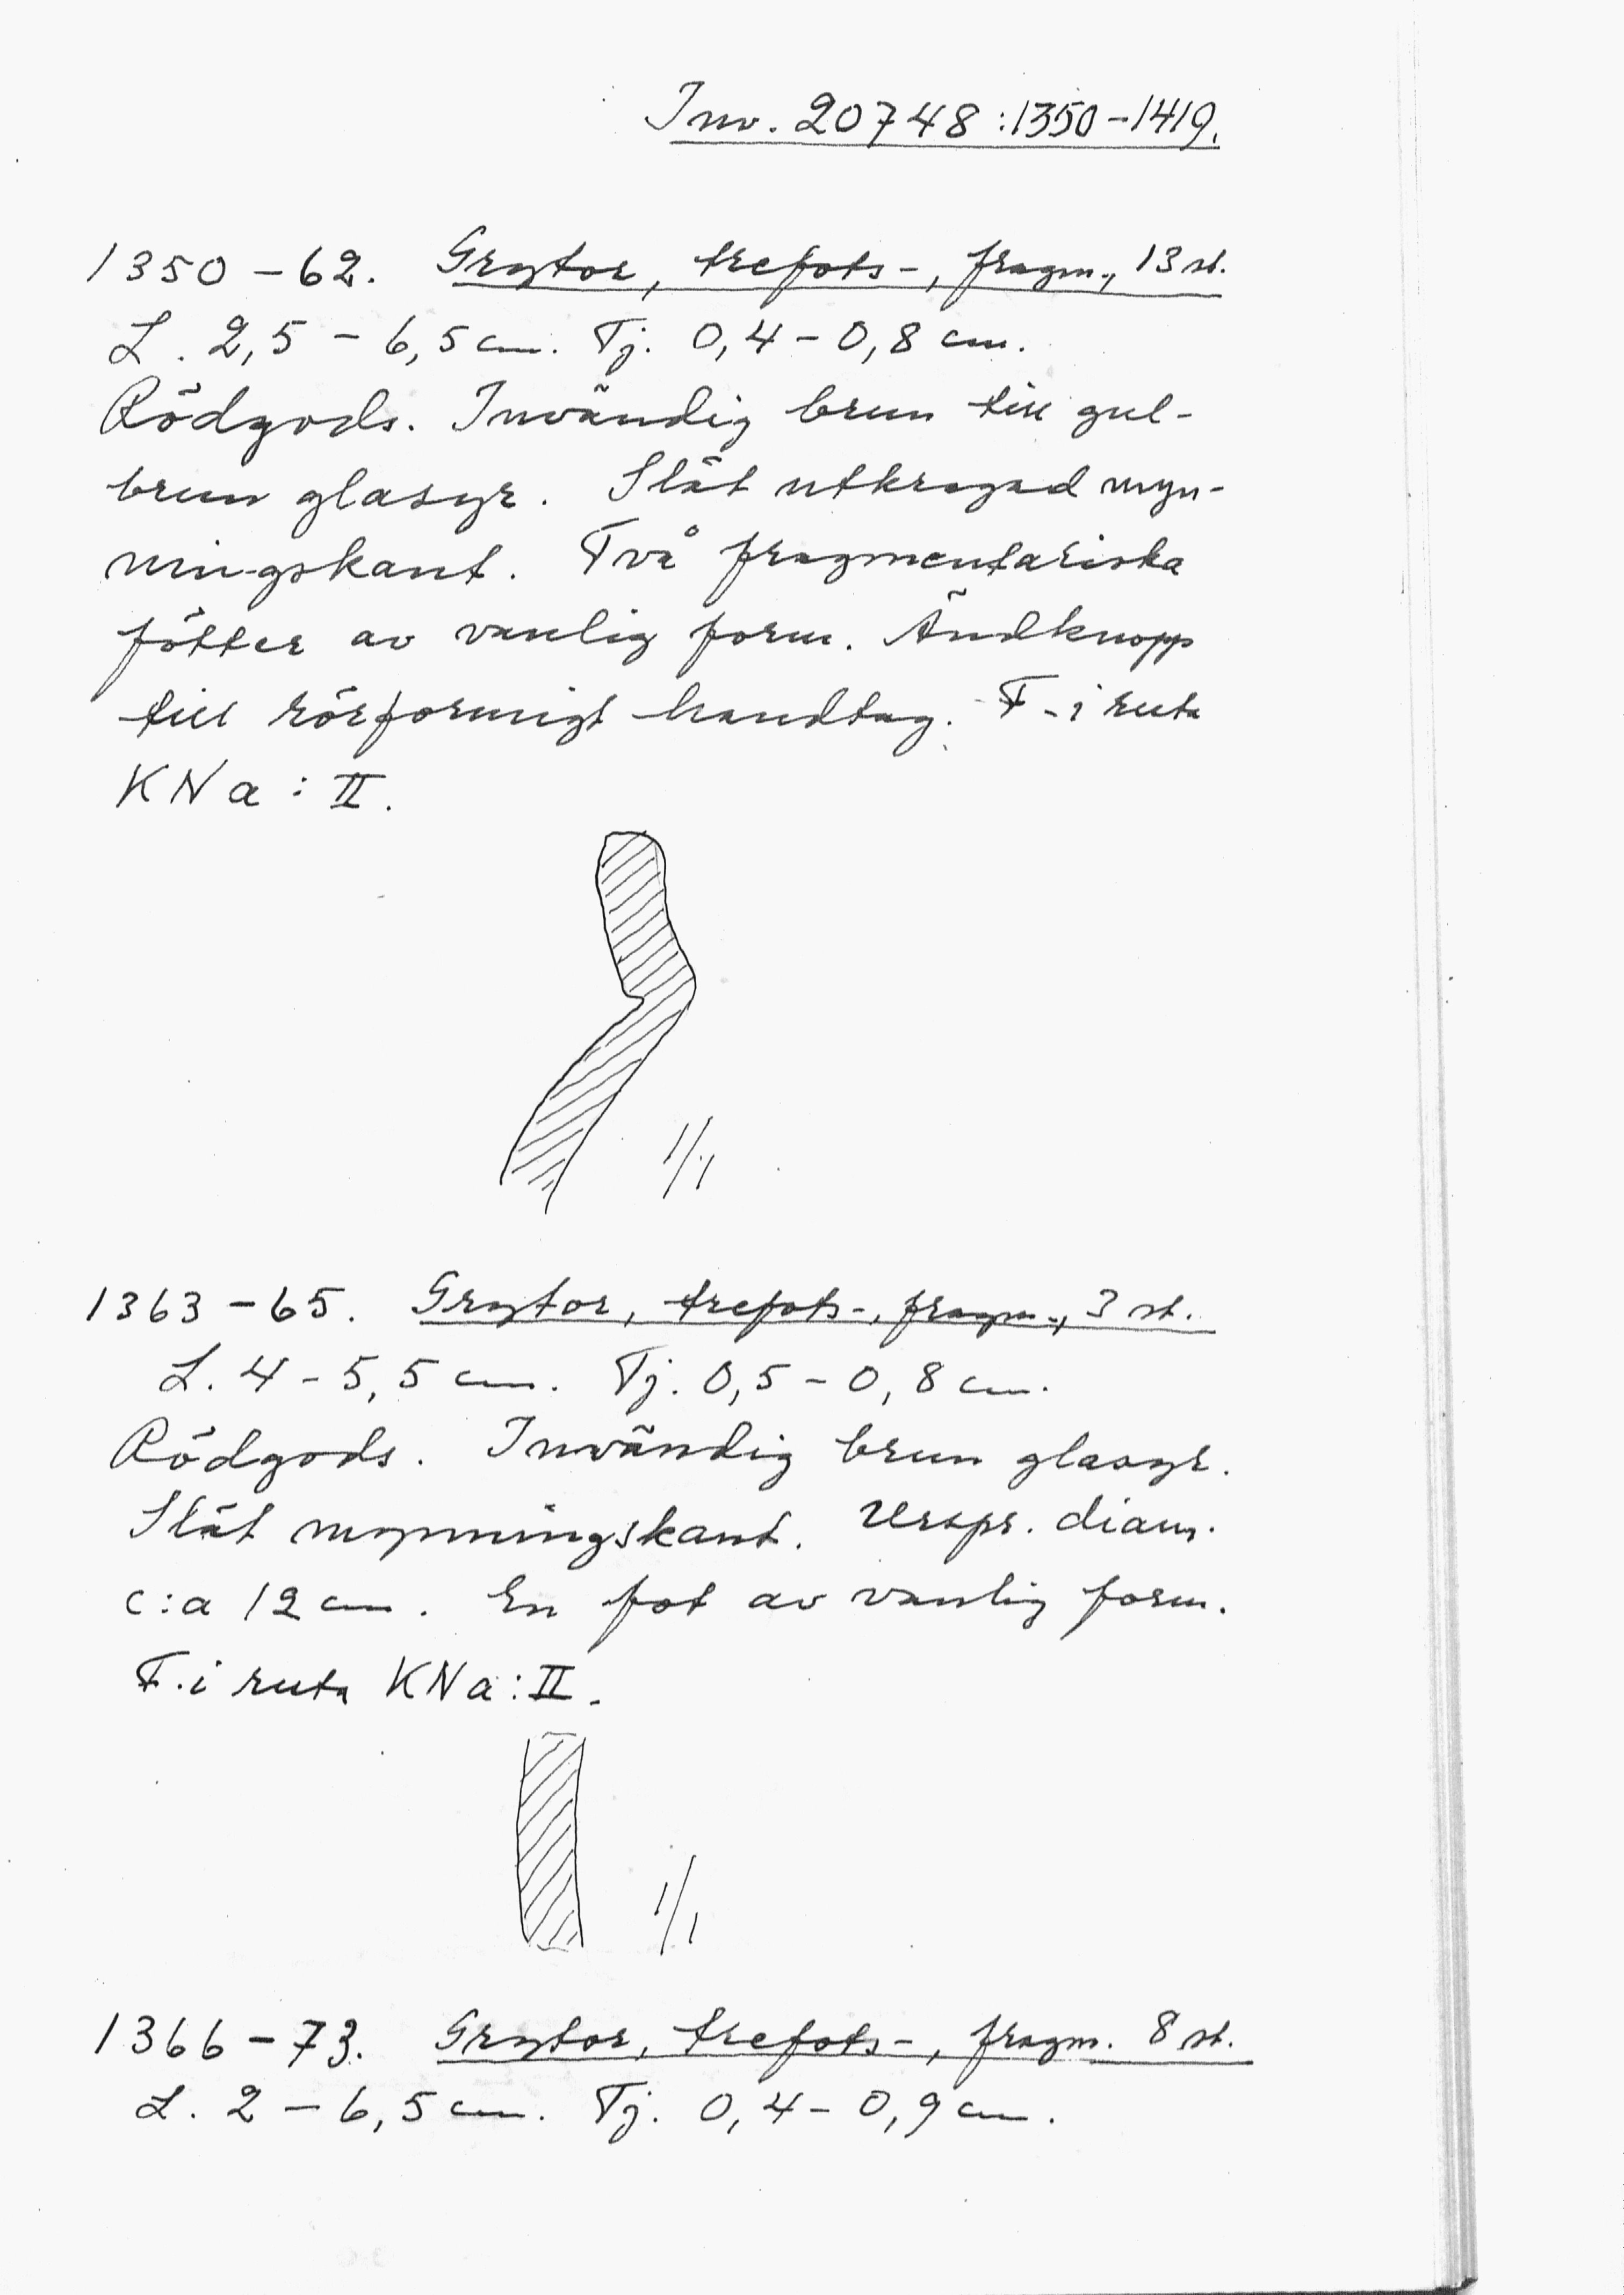 Inv. 20748:1350-1419.
1350-62. Grytor, trefots-, fragm., 13 st.
L. 2,5 - 6,5 cm. Tj. 0,4 - 0,8 cm.
Rödgods. Invändig brun till gul-
brun glasyr. Slät utkragad myn-
ningskant. Två fragmentariska
fötter av vanlig form. Ändknopp
till rörformigt handtag. F. i ruta
KNa: II.
1/1
1363-65. Grytor, trefots-, fragm., 3 st.
L. 4 - 5,5 cm. Tj. 0,5 - 0,8 cm.
Rödgods. Invändig brun glasyr.
Slät mynningskant. Urspr. diam.
c:a 12 cm. En fot av vanlig form.
F. i ruta KNa: II.
1/1
1366-73. Grytor, trefots-, fragm. 8 st.
L. 2 - 6,5 cm. Tj. 0,4 - 0,9 cm.